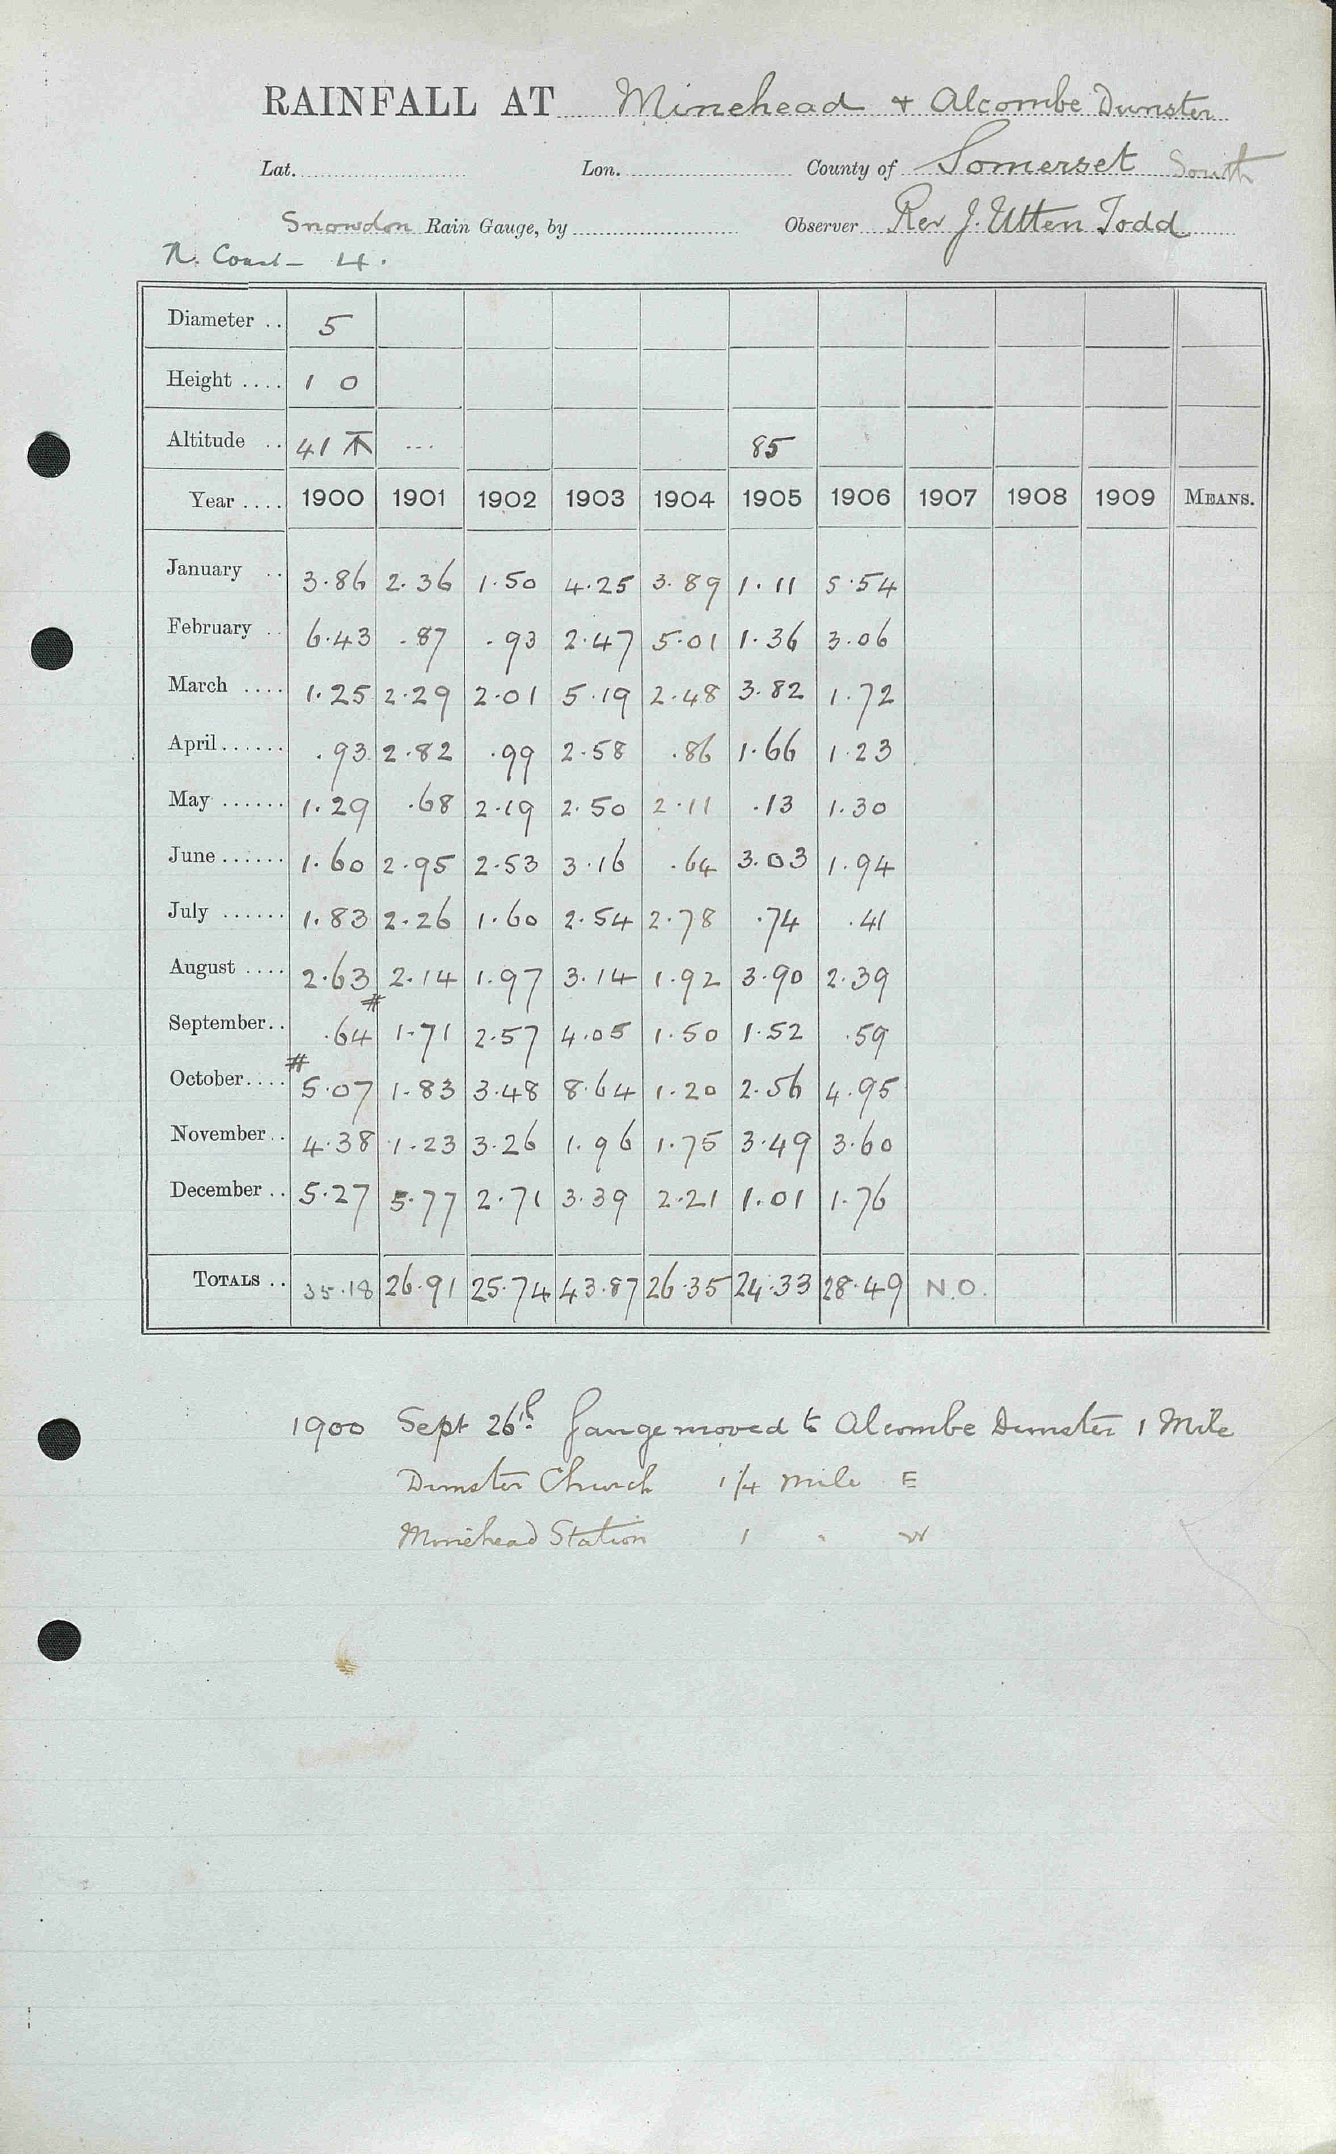 RAINFALL AT Minehead + Alcombe Dunster
Lat. Lon. County of Somerset South
Snowdon Rain Gauge, by Observer Rev J. Utten Todd
4.
Diameter .. 5
Height .... 1 0
Altitude .. 41 ... 85
Year .... 1900 1901 1902 1903 1904 1905 1906 1907 1908 1909 MEANS.
January .. 3.86 2.36 1.50 4.25 3.89 1.11 5.54
February .. 6.43 .87 .93 2.47 5.01 1.36 3.06
March .... 1.25 2.29 2.01 5.19 2.48 3.82 1.72
April ...... .93 2.82 .99 2.58 .86 1.66 1.23
May ...... 1.29 .68 2.19 2.50 2.11 .13 1.30
June ...... 1.60 2.95 2.53 3.16 .64 3.03 1.94
July ...... 1.83 2.26 1.60 2.54 2.78 .74 .41
August .... 2.63 2.14 1.97 3.14 1.92 3.90 2.39
September.. .64 # 1.71 2.57 4.05 1.50 1.52 .59
October.... # 5.07 1.83 3.48 8.64 1.20 2.56 4.95
November.. 4.38 1.23 3.26 1.96 1.75 3.49 3.60
December .. 5.27 5.77 2.71 3.39 2.21 1.01 1.76
TOTALS .. 35.18 26.91 25.74 43.87 26.35 24.33 28.49 N.O.
1900 Sept 26th gauge moved to Alcombe Dunster 1 Mile
Dunster Church 1/4 mile E
Minehead Station 1 " W